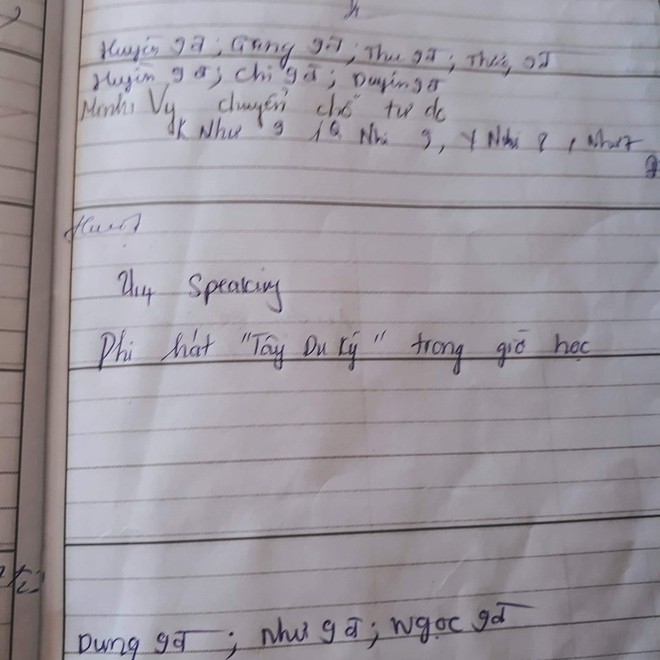 Huyền 9đ; Giang 9đ; Thu 9đ; 9đ
Huyền 9đ; Chi 9đ; Duyên 9đ
Minh Vy chuyển chỗ tự do
K Như 9 Nhi 9, Y Nhi 8, Như 7
U4 Speaking
Phi hát "Tây Du Ký" trong giờ học
Dung 9đ; Như 9đ; Ngọc 9đ